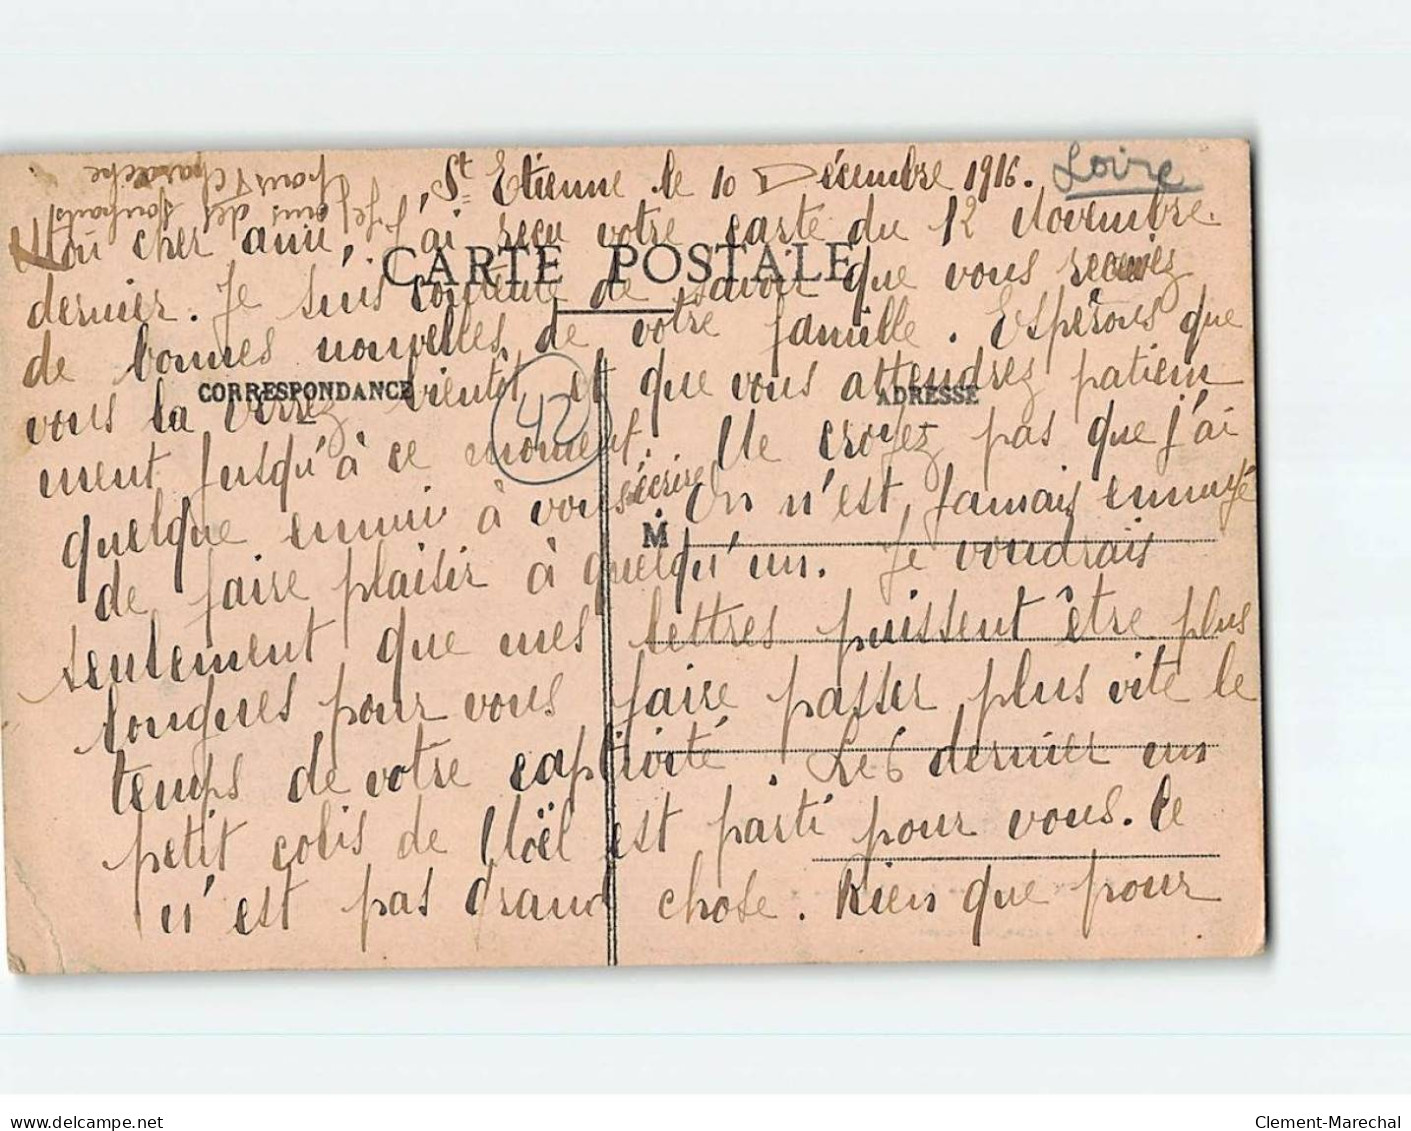 St Etienne le 10 Décembre 1916. Loire
Mon cher ami, J'ai reçu votre carte du 12 Novembre
CARTE POSTALE
dernier. Je suis contente de savoir que vous receviez
de bonnes nouvelles de votre famille. Espérons que
CORRESPONDANCE
ADRESSE
vous la verrez bientôt et que vous attendrez patiem
42
ment jusqu'à ce moment. Ne croyez pas que j'ai
quelque ennui à vous écrire. On n'est jamais ennuyé
M
de faire plaisir à quelqu'un. Je voudrais
seulement que mes lettres puissent être plus
longues pour vous faire passer plus vite le
temps de votre captivité. Le 6 dernier un
petit colis de Noël est parti pour vous. Ce
n'est pas grand chose. Rien que pour
Clement-Marechal
www.delcampe.net